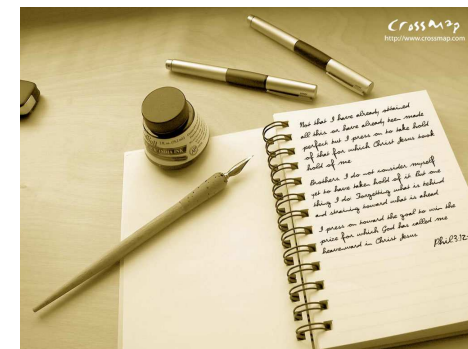 crossmap
http://www.crossmap.com
Not that I have already attained
all this or have already been made
perfect but I press on to take hold
of that for which Christ Jesus took
hold of me
Brothers I do not consider myself
yet to have taken hold of it But one
thing I do Forgetting what is behind
and straining toward what is ahead
I press on toward the goal to win the
prize for which God has called me
heavenward in Christ Jesus
Phil 3:12-